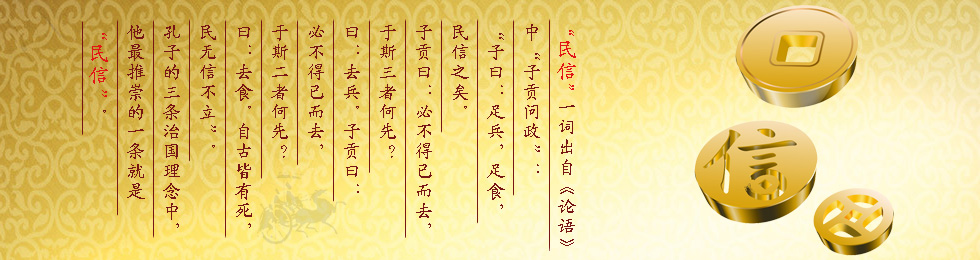 “民信”一词出自《论语》
中“子贡问政”：
“子曰：足兵，足食，
民信之矣。
子贡曰：必不得已而去，
于斯三者何先？
曰：去兵。子贡曰：
必不得已而去，
于斯二者何先？
曰：去食。自古皆有死，
民无信不立”。
孔子的三条治国理念中，
他最推崇的一条就是
“民信”。
信